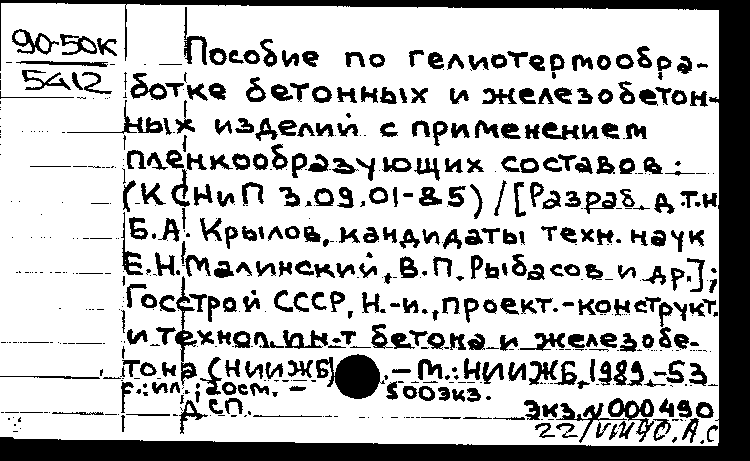 90-50К
5412
Пособие по гелиотермообра-
ботке бетонных и железобетон-
ных изделий с применением
пленкообразующих составов:
(К СНиП 3.09.01-85) / [Разраб. д.т.н
Б.А. Крылов, кандидаты техн. наук
Е.Н. Малинский, В.П. Рыбасов и др.];
Госстрой СССР, Н.-и., проект.-конструкт.
и технол. ин-т бетона и железобе-
тона (НИИЖБ) .-М.: НИИЖБ, 1989.-53
с.: ил.; 20см. - 500экз.
ДСП. Экз.N000490
22/VIII90. А.С